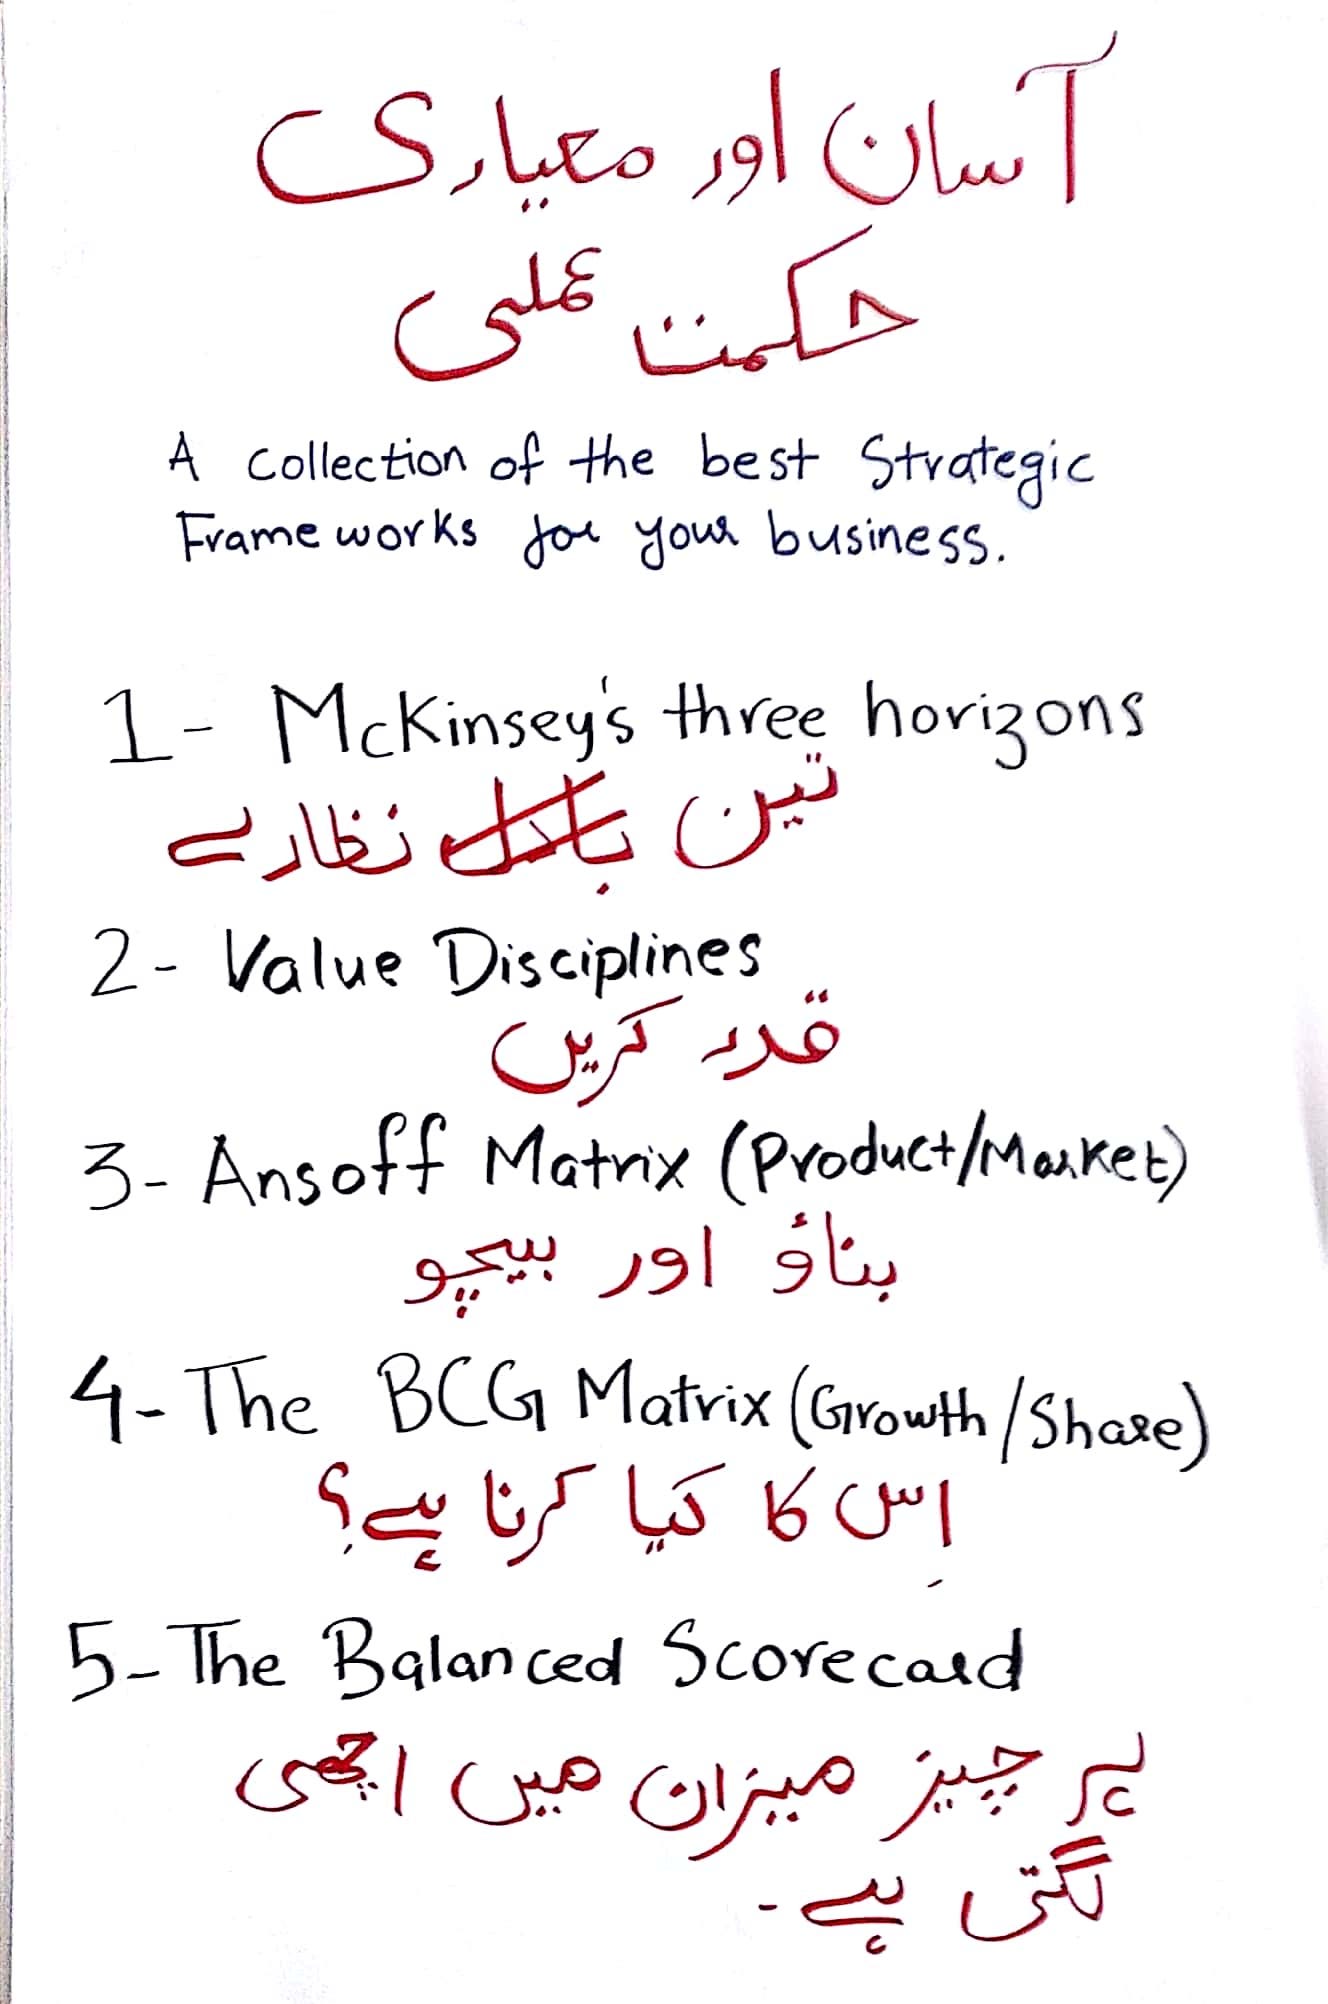 آسان اور معیاری
حکمت عملی
A collection of the best Strategic
Frameworks for your business.
1- McKinsey's three horizons
تین نظارے
2- Value Disciplines
قدر کریں
3- Ansoff Matrix (Product/Market)
بناؤ اور بیچو
4- The BCG Matrix (Growth/Share)
اِس کا کیا کرنا ہے؟
5- The Balanced Scorecard
ہر چیز میزان میں اچھی
لگتی ہے۔